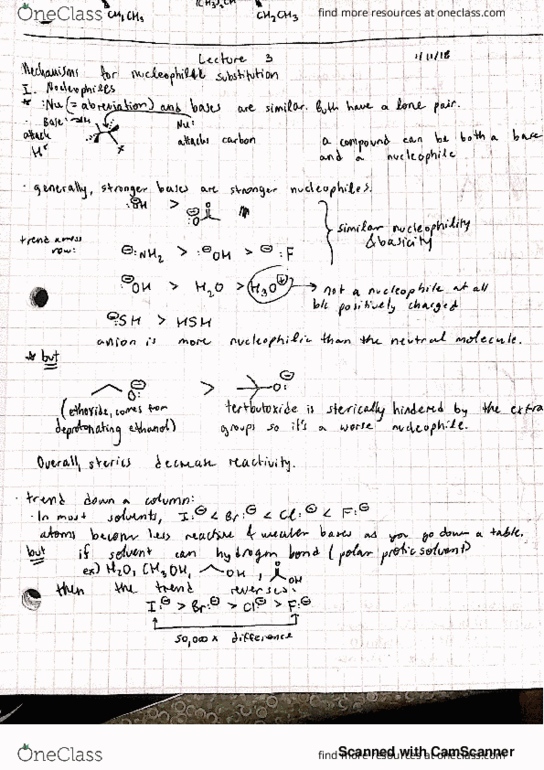 OneClass
find more resources at oneclass.com
CH2CH3
CH2CH3
Lecture 3
1/11/18
Mechanisms for nucleophilic substitution
I. Nucleophiles
* :Nu (= abreviation) and bases are similar. Both have a lone pair.
Base:
Nu:
attack
attacks carbon
a compound can be both a base
H+
x
and a nucleophile
· generally, stronger bases are stronger nucleophiles.
⊖:OH >
similar nucleophility
& basicity
trend across
row:
⊖:NH2 > :⊖OH > ⊖:F
⊖:OH > H2O > H3O⊕ → not a nucleophile at all
b/c positively charged
⊖:SH > HSH
anion is more nucleophilic than the neutral molecule.
* but
O:⊖ > O:⊖
(ethoxide, comes from
deprotonating ethanol)
tertbutoxide is sterically hindered by the extra
groups so it's a worse nucleophile.
Overall, sterics decrease reactivity.
· trend down a column:
· In most solvents, I:⊖ < Br:⊖ < Cl:⊖ < F:⊖
atoms become less reactive & weaker bases as you go down a table.
but if solvent can hydrogen bond (polar protic solvent)
ex) H2O, CH3OH, OH, O OH
then the trend reverses:
I:⊖ > Br:⊖ > Cl:⊖ > F:⊖
50,000x difference
OneClass
find more resources at oneclass.com
Scanned with CamScanner